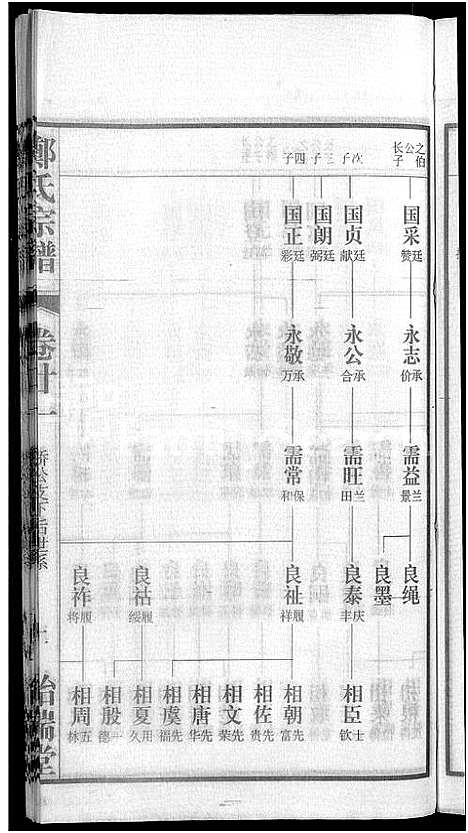 之伯
公
长子
次子
三子
四子
国采
廷赞
国贞
廷献
国朗
廷弼
国正
廷彩
永志
承价
永公
承合
永敬
承万
需益
兰景
需旺
兰田
需常
保和
良绳
良墨
良泰
庆丰
良祉
履祥
良祜
履绥
良祚
履将
相臣
士钦
相朝
先富
相佐
先贵
相文
先荣
相唐
先华
相虞
先福
相夏
用久
相殷
一德
相周
五林
郑氏宗谱
卷廿一
公支下
世系
治瑞堂